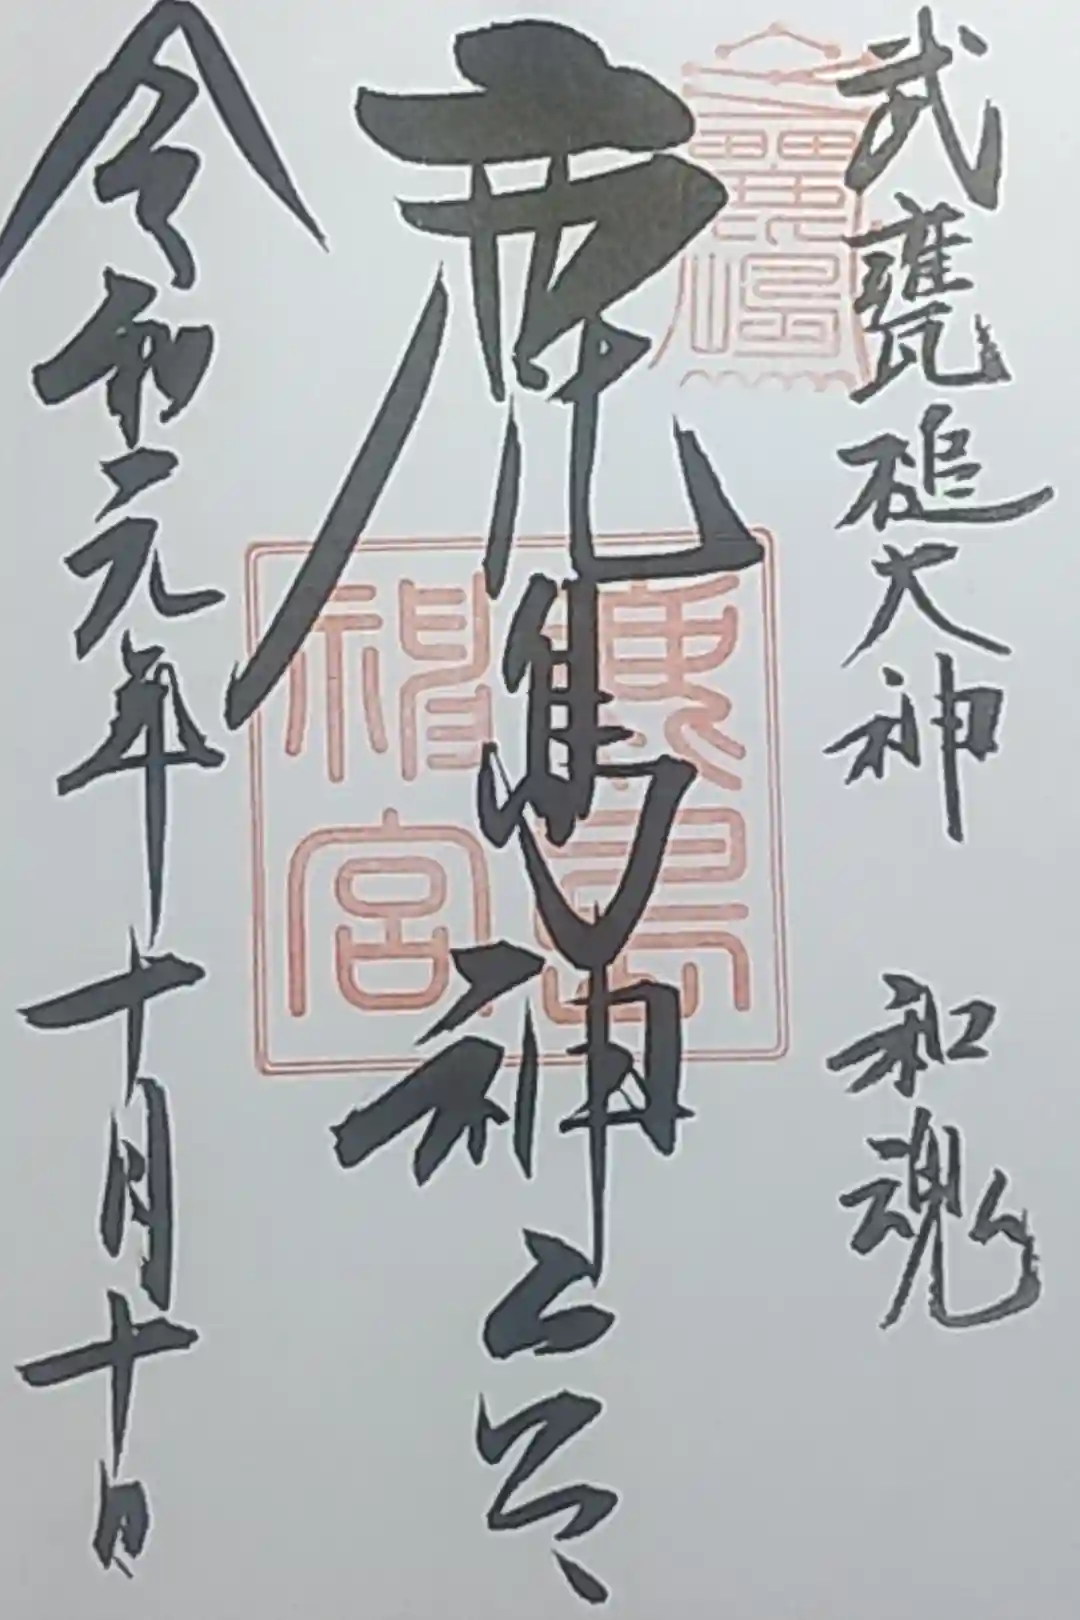 武甕槌大神 和魂
鹿島神宮
鹿島
神宮
令和元年十月十日